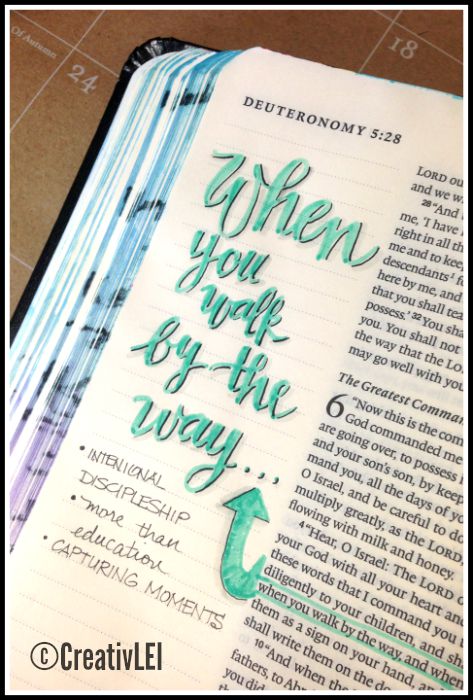 Of Autumn
24
18
DEUTERONOMY 5:28
When
you
walk
by the
way...
• INTENIONAL
DISCIPLESHIP
• more than
education
• CAPTURING MOMENTS
LORD ou
and we w
28 "And
me, 'I have
right in all th
me and to kee
descendants
here by me, and
that you shall tea
possess.' 32 You sha
you. You shall not
the way that the LO
may go well with you
The Greatest Comma
6 "Now this is the com
God commanded me
are going over, to possess
and your son's son, by keep
mand you, all the days of yo
O Israel, and be careful to do
multiply greatly, as the LORD,
flowing with milk and honey.
4 "Hear, O Israel: The LORD
your God with all your heart and
these words that I command you t
diligently to your children, and sh
when you walk by the way, and when
them as a sign on your hand, and
shall write them on the do
10 "And when the
fathers, to Ab
you did
©CreativLEI